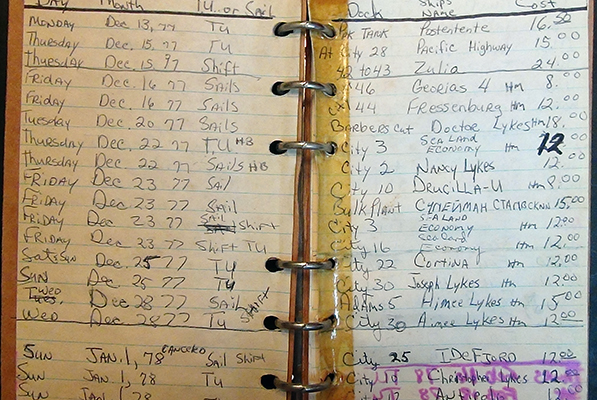 DAY Month TU..or Sail Dock Ships Name Cost
MONDAY Dec 13, 77 TU Tank Postentente 16.50
Thursday Dec. 15, 77 TU At City 28 Pacific Highway 15.00
Thursday Dec 15 77 Shift 42 to 43 Zulia 24.00
FRiday Dec. 16 77 Sails 46 Georias 4 Hm 8.00
FRiday Dec. 16 77 Sails 44 FRessenburg Hm 12.00
Tuesday Dec. 20 77 Sails Barbers cut Doctor Lykes Hm 18.00
Thursday Dec. 22 77 TU HB City 3 Sea Land Economy Hm 12.00
Thursday Dec. 22 77 Sails HB City 2 Nancy Lykes 12.00
FRIDAY Dec 23 77 Sail City 10 DRUCILLA-U Hm 8.00
FRiday Dec. 23 77 Sail Bulk Plant 15.00
FRIDAY Dec 23 77 Shift City 3 Sea Land Economy Hm 12.00
FRIDAY Dec. 23 77 Shift TU City 16 Sea Land Economy Hm 12.00
Dec. 25 77 TU City 22 CORTiNA Hm 12.00
SUN Dec 25 77 TU City 30 Joseph Lykes Hm 12.00
Wed Dec 28 77 Sail Shift Adams 5 Aimee Lykes Hm 15.00
WED Dec. 28 77 TU City 30 Aimee Lykes Hm 12.00
SUN JAN. 1, 78 CANCELED Sail Shift City 25 IDEFJORD 12.00
SUN JAN. 1, 78 TU City 19 Christopher Lykes 12.00
SUN JAN. 1, 78 TU City